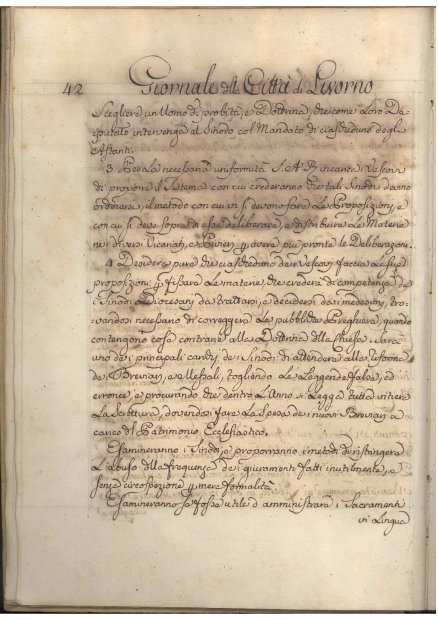 42 Giornale della Città di Livorno
Scegliere un Uomo di probità, e Dottrina, che come Loro De-
putato intervenga al Sinodo col Mandato di ciascheduno degli
Astanti.
3. Per la necessaria uniformità S. A. R. incarica i Vescovi
di proporre il Sistema con cui crederanno che tali Sinodi devino
ordinarsi, il metodo con cui vi si devono fare le Proposizioni, e
con cui si deve sopra di esse deliberare, e distribuire le Materie
nei diversi Vicariati, e Punti p. avere più pronte le Deliberazioni.
4. Desidera pure che ciascheduno dei Vescovi faccia le sue
proposizioni p. fissare le materie, che crederà di competenza de
i Sinodi Diocesani da trattarsi, e decidersi da i medesimi, tro-
vandosi necessario di correggere le pubbliche Preghiere, quando
contengono cose contrarie alla Dottrina della Chiesa. Sarà
uno de i principali cardini de i Sinodi di attendere alla reforma
de Breviari, e Messali, togliendo le Leggende false, ed
erronee, e procurando che dentro l'Anno si Legga tutta intiera
la Scrittura, dovendosi fare la Spesa de i nuovi Breviari a
carico del Patrimonio Ecclesiastico.
Esamineranno i Sinodi, e proporranno i metodi di restringere
l'abuso della frequenza de i giuramenti fatti inutilmente, e
senza circospezione p. mere formalità.
Esamineranno se fosse utile d'amministrare i Sacramenti
in Lingua